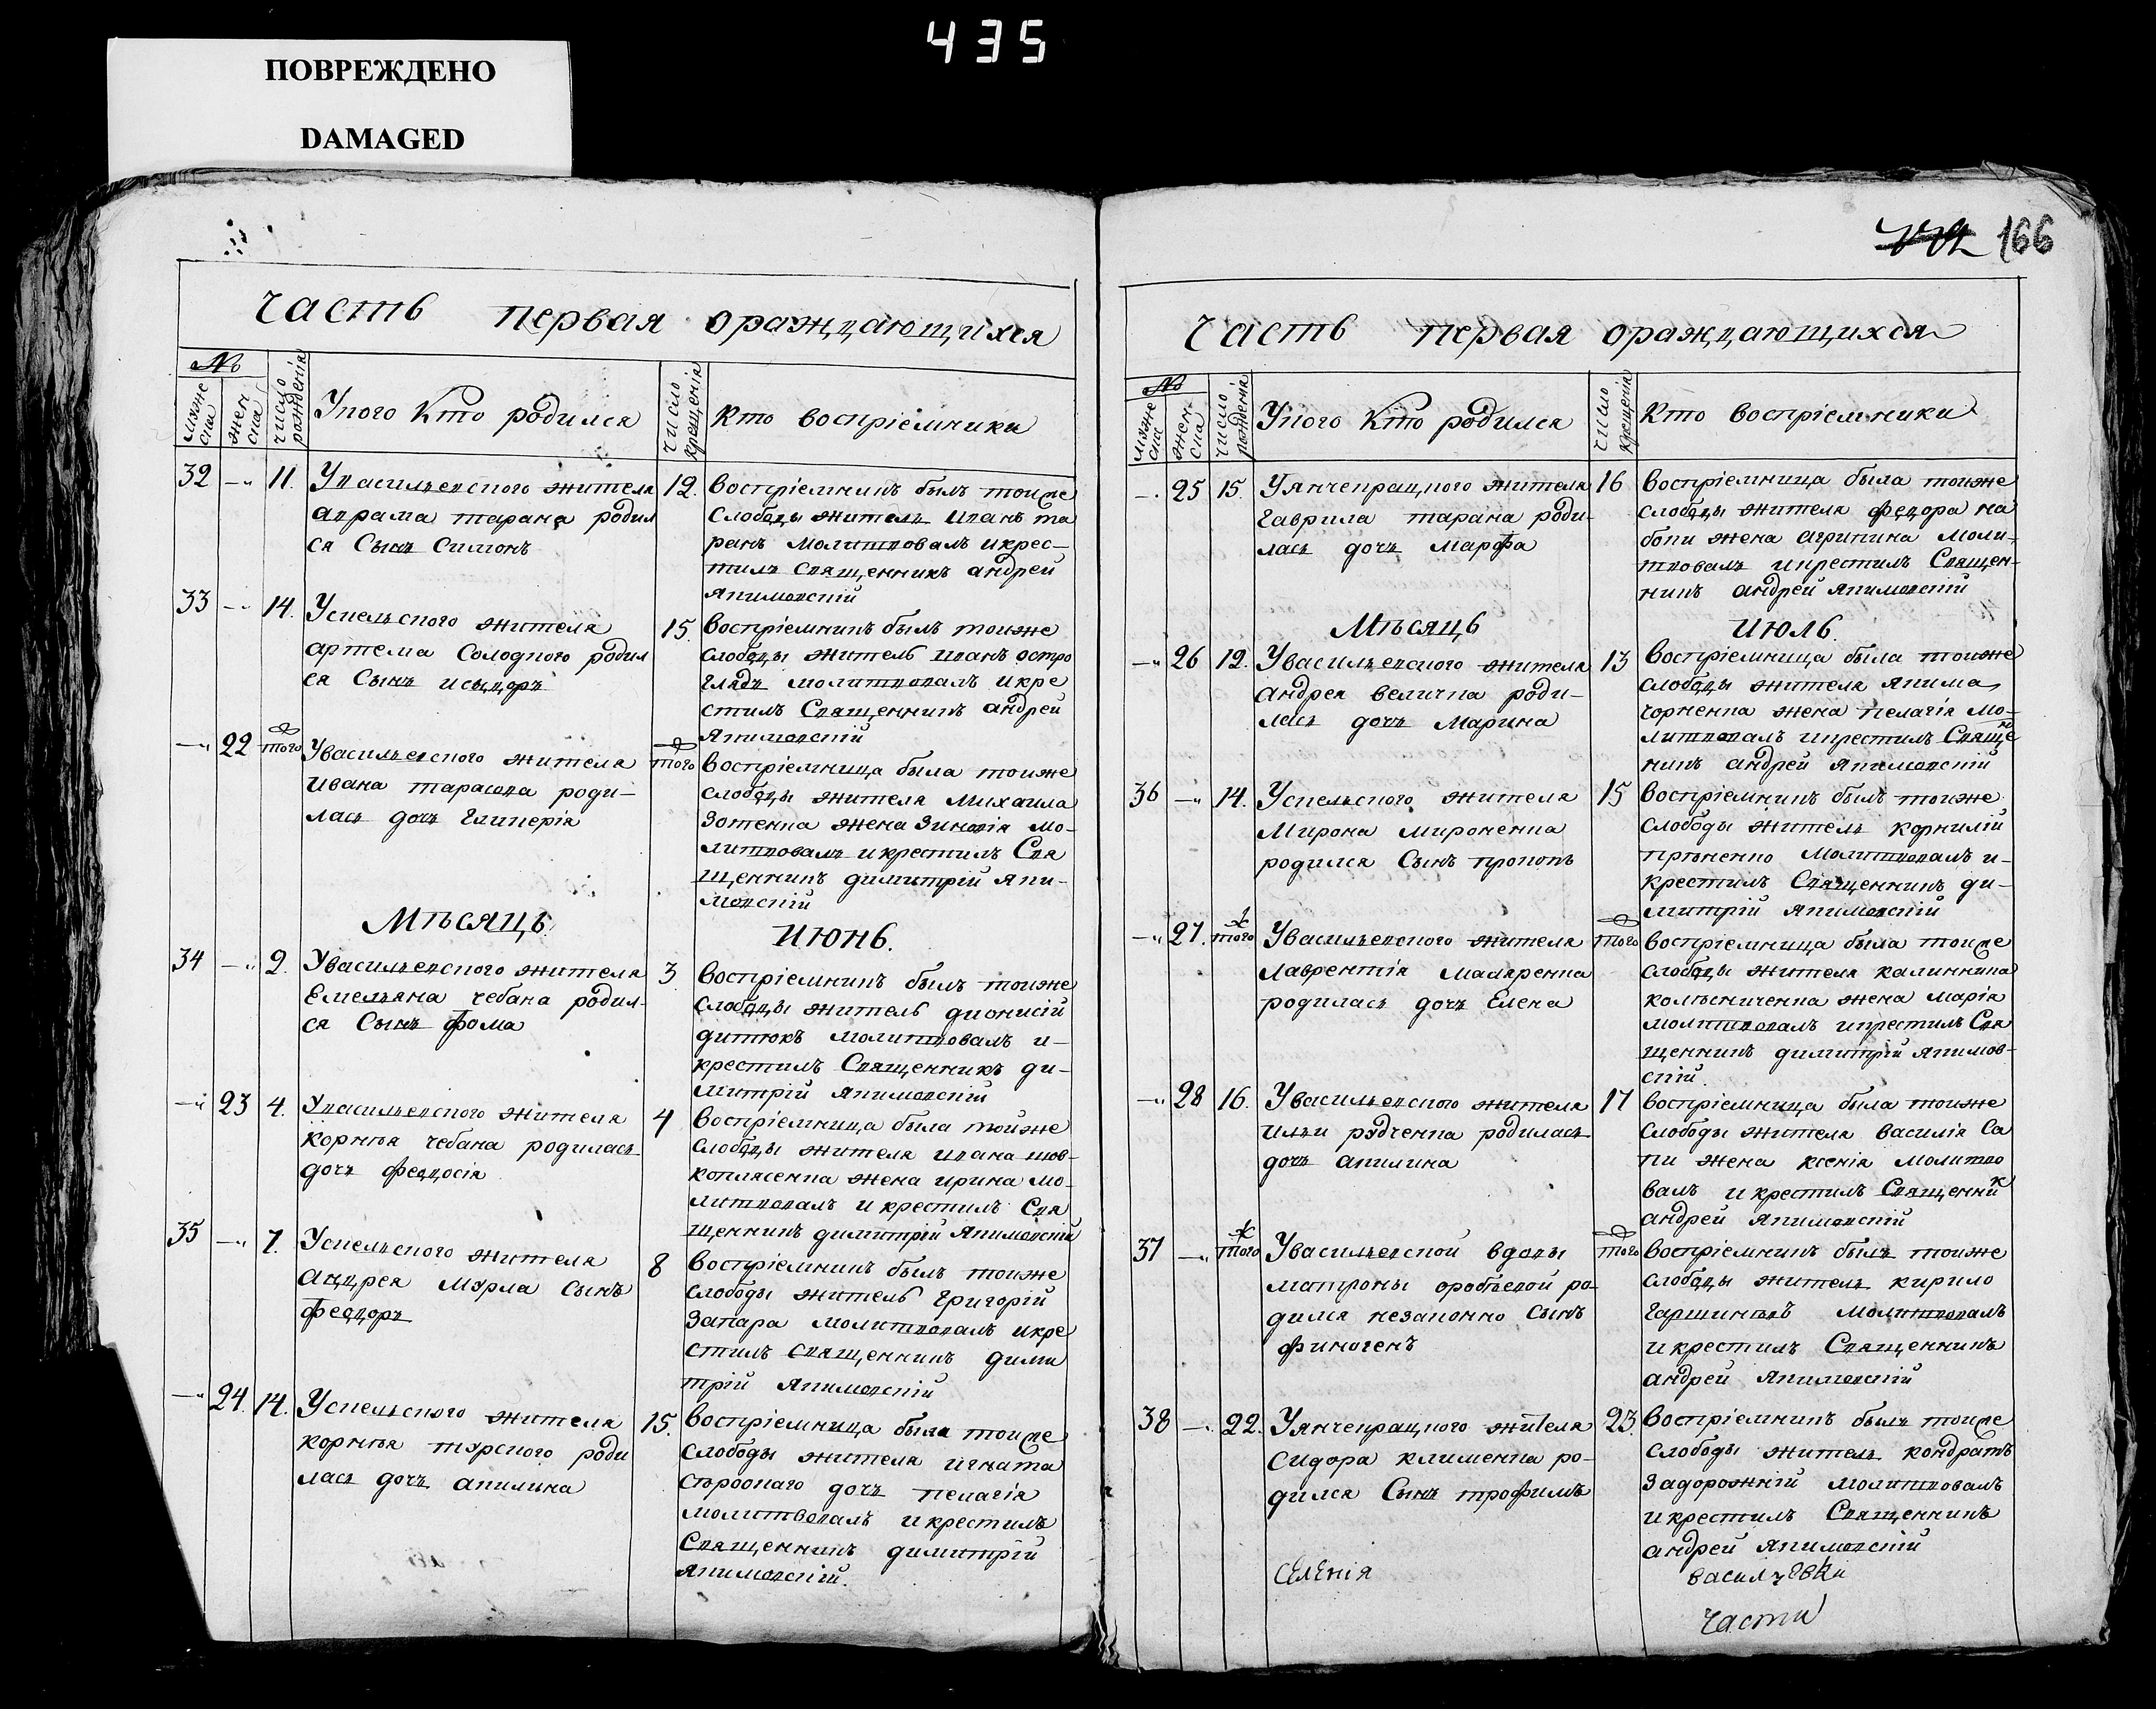 435
ПОВРЕЖДЕНО
DAMAGED
166
Часть первая ораждающихся
№
мужеска
женска
число рожденія
Укого Кто родился
число крещенія
кто воспріемники
32 — 11. Увасильевского жителя
аврама тарана родил
ся Сынъ Симонъ
12. воспріемникъ былъ тоиже
слободы житель иванъ та
ранъ молитвовалъ икрес–
тилъ священникъ андрей
Якимовскій
33 — 14. Успельского жителя
артема Солодкого родил
ся Сынъ исыдоръ
15. воспріемникъ былъ тоиже
слободы житель иванъ остро
глядъ молитвовалъ икре
стилъ Священникъ андрей
Якимовскій
— 22 того Увасильевского жителя
ивана тарасова роди–
лась дочь гликерія
того воспріемница была тоиже
слободы жителя Михаила
Зотенка жена Зиновія мо–
литвовалъ икрестилъ Свя
щенникъ димитрій Яки–
мовскій
Мѣсяцъ Июнь.
34 — 2. Увасильевского жителя
Емельяна чебана родил–
ся Сынъ фома
3 воспріемникъ былъ тоиже
слободы житель дионисій
дитюкъ молитвовалъ и–
крестилъ Священникъ ди–
митрій Якимовскій
— 23 4. Увасильевского жителя
корнѣя чебана родилась
дочь феодосія
4 воспріемница была тойже
слободы жителя ивана шов–
коплясенка жена ирина мо–
литвовалъ и крестилъ Свя
щенникъ димитрій Якимовскій
35 — 7. Успельского жителя
андрея мурла сынъ
феодоръ
8 воспріемникъ былъ тоиже
слободы житель григорій
Запара молитвовалъ икре
стилъ священникъ дими
трій Якимовскій
— 24. 14. Успельского жителя
корнѣя турского роди
лась дочь акилина
15. воспріемница была тоиже
слободы жителя игната
дочь пелагія
молитвовалъ икрестилъ
Священникъ димитрій
Якимовскій.
Часть первая ораждающихся
№
мужеска
женска
число рожденія
Укого Кто родился
число крещенія
Кто воспріемники
— 25 15. Уянчекрацкого жителя
гаврила тарана роди–
лась дочь марфа
16 воспріемница была тоиже
слободы жителя федора на
боки жена агрипина моли–
твовалъ икрестилъ Священ–
никъ андрей Якимовскій
Мѣсяцъ июль.
— 26 12. Увасильевского жителя
андрея величка роди–
лась дочь Марина
13 воспріемница была тоиже
слободы жителя якима
чорненка жена пелагія мо–
литвовалъ икрестилъ Свяще
никъ андрей Якимовскій
36 — 14. Успельского жителя
Мирона мироненка
родился Сынъ прокопъ
15 воспріемникъ былъ тоиже
слободы житель корнилій
молитвовалъ и–
крестилъ Священникъ ди–
митрій Якимовскій
— 27. того Увасильевского жителя
лаврентія макаренка
родилась дочь Елена
того воспріемница была тоиже
слободы жителя калинника
колѣсниченка жена марія
молитвовалъ икрестилъ Свя
щенникъ димитрій якимов–
скій.
— 28 16. Увасильевского жителя
ильи рудченка родилась
дочь акилина
17 воспріемница была тоиже
слободы жителя василія Са
пи жена ксенія молитво
валъ икрестилъ Священник
андрей Якимовскій
37 — того Увасильевской вдовы
матроны оробьевой ро–
дился незаконно Сынъ
финогенъ
того воспріемникъ былъ тоиже
слободы житель кирило
гаршинѣвъ молитвовалъ
икрестилъ Священникъ
андрей Якимовскій
38 — 22. Уянчекрацкого жителя
Сидора клименка ро–
дился Сынъ трофимъ
23. воспріемникъ былъ тоиже
слободы житель кондратъ
Задорожній молитвовалъ
икрестилъ Священникъ
андрей Якимовскій
селенія васильевки
части